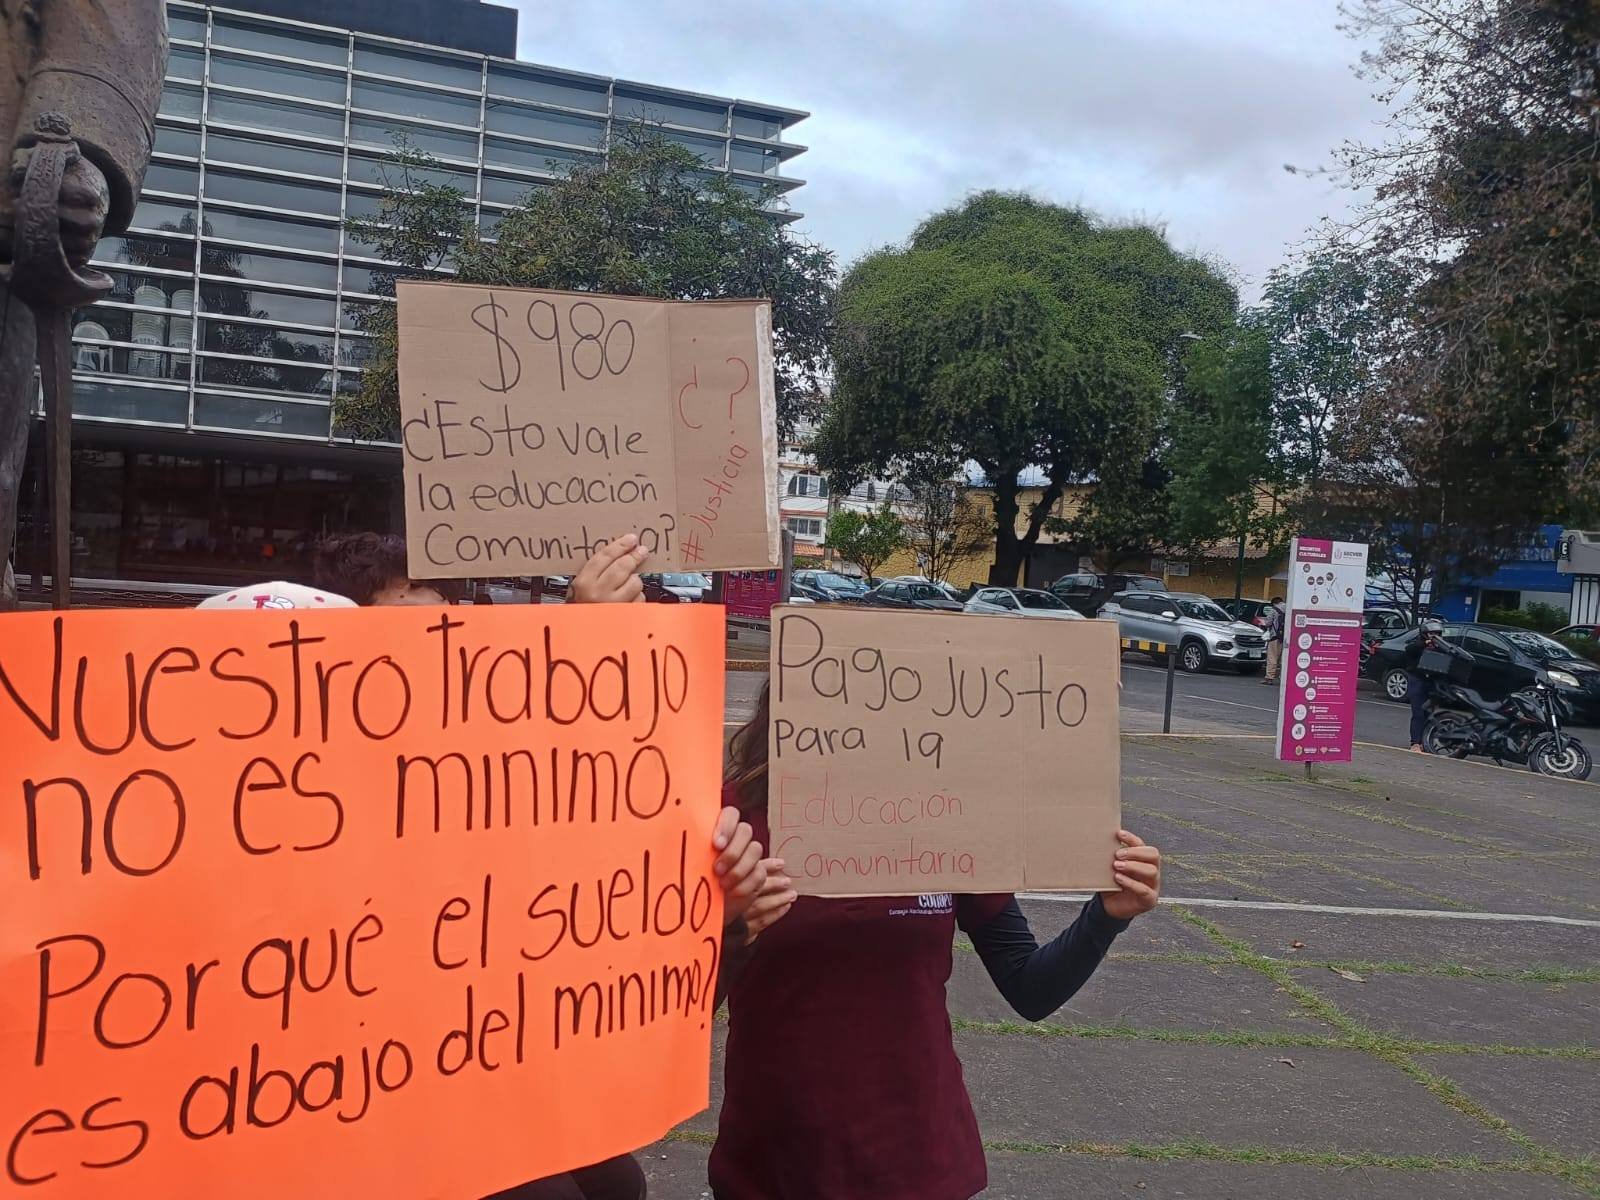 $980
¿Esto vale
la educación
Comunitaria?
¿?
#Justicia
Nuestro trabajo
no es minimo.
Por qué el sueldo
es abajo del minimo?
Pago justo
Para la
Educación
Comunitaria
CONAFE
RECINTOS
CULTURALES
SECVER